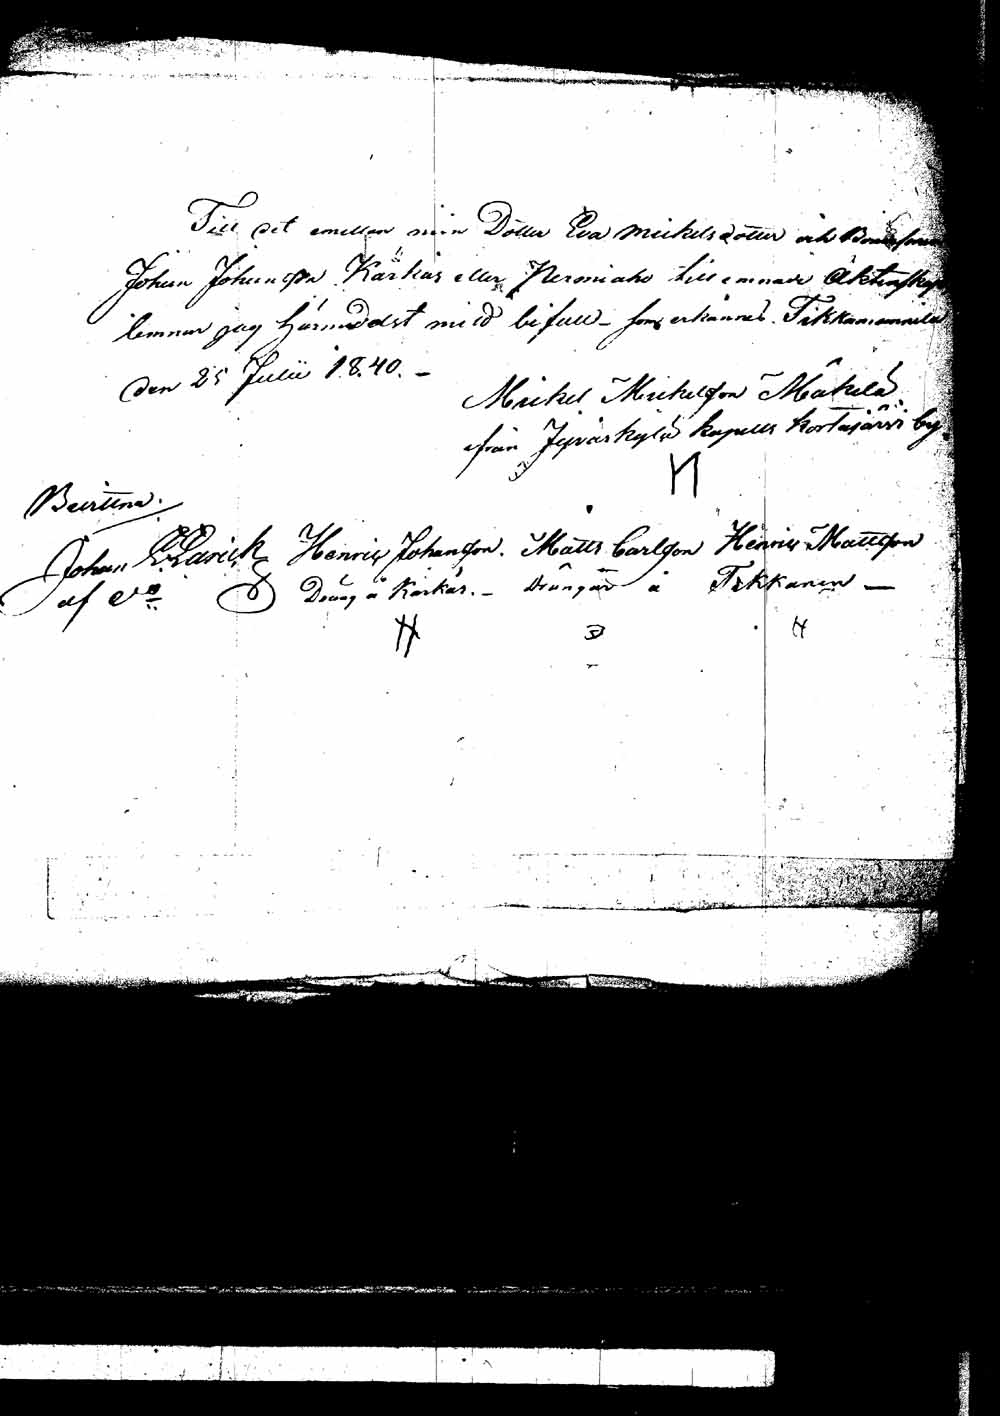 Till det emellan min Dotter Eva Mickelsdotter och Bondesonen
Johan Johansson Kärkäs eller Nermiaho tillemnade äktenskap
lemnar jag härmedelst mitt bifall som erkännes. Tikkamannila
den 25 Julii 1840. –
Mickel Mickelsson Mäkelä
från Jyväskylä kapells Kortajärvi by.
Bevittna.
Johan Henric Johansson. Matts Carlsson Henric Mattsson
af Dräng å Kärkäs. – Drängar å Tikkanen —